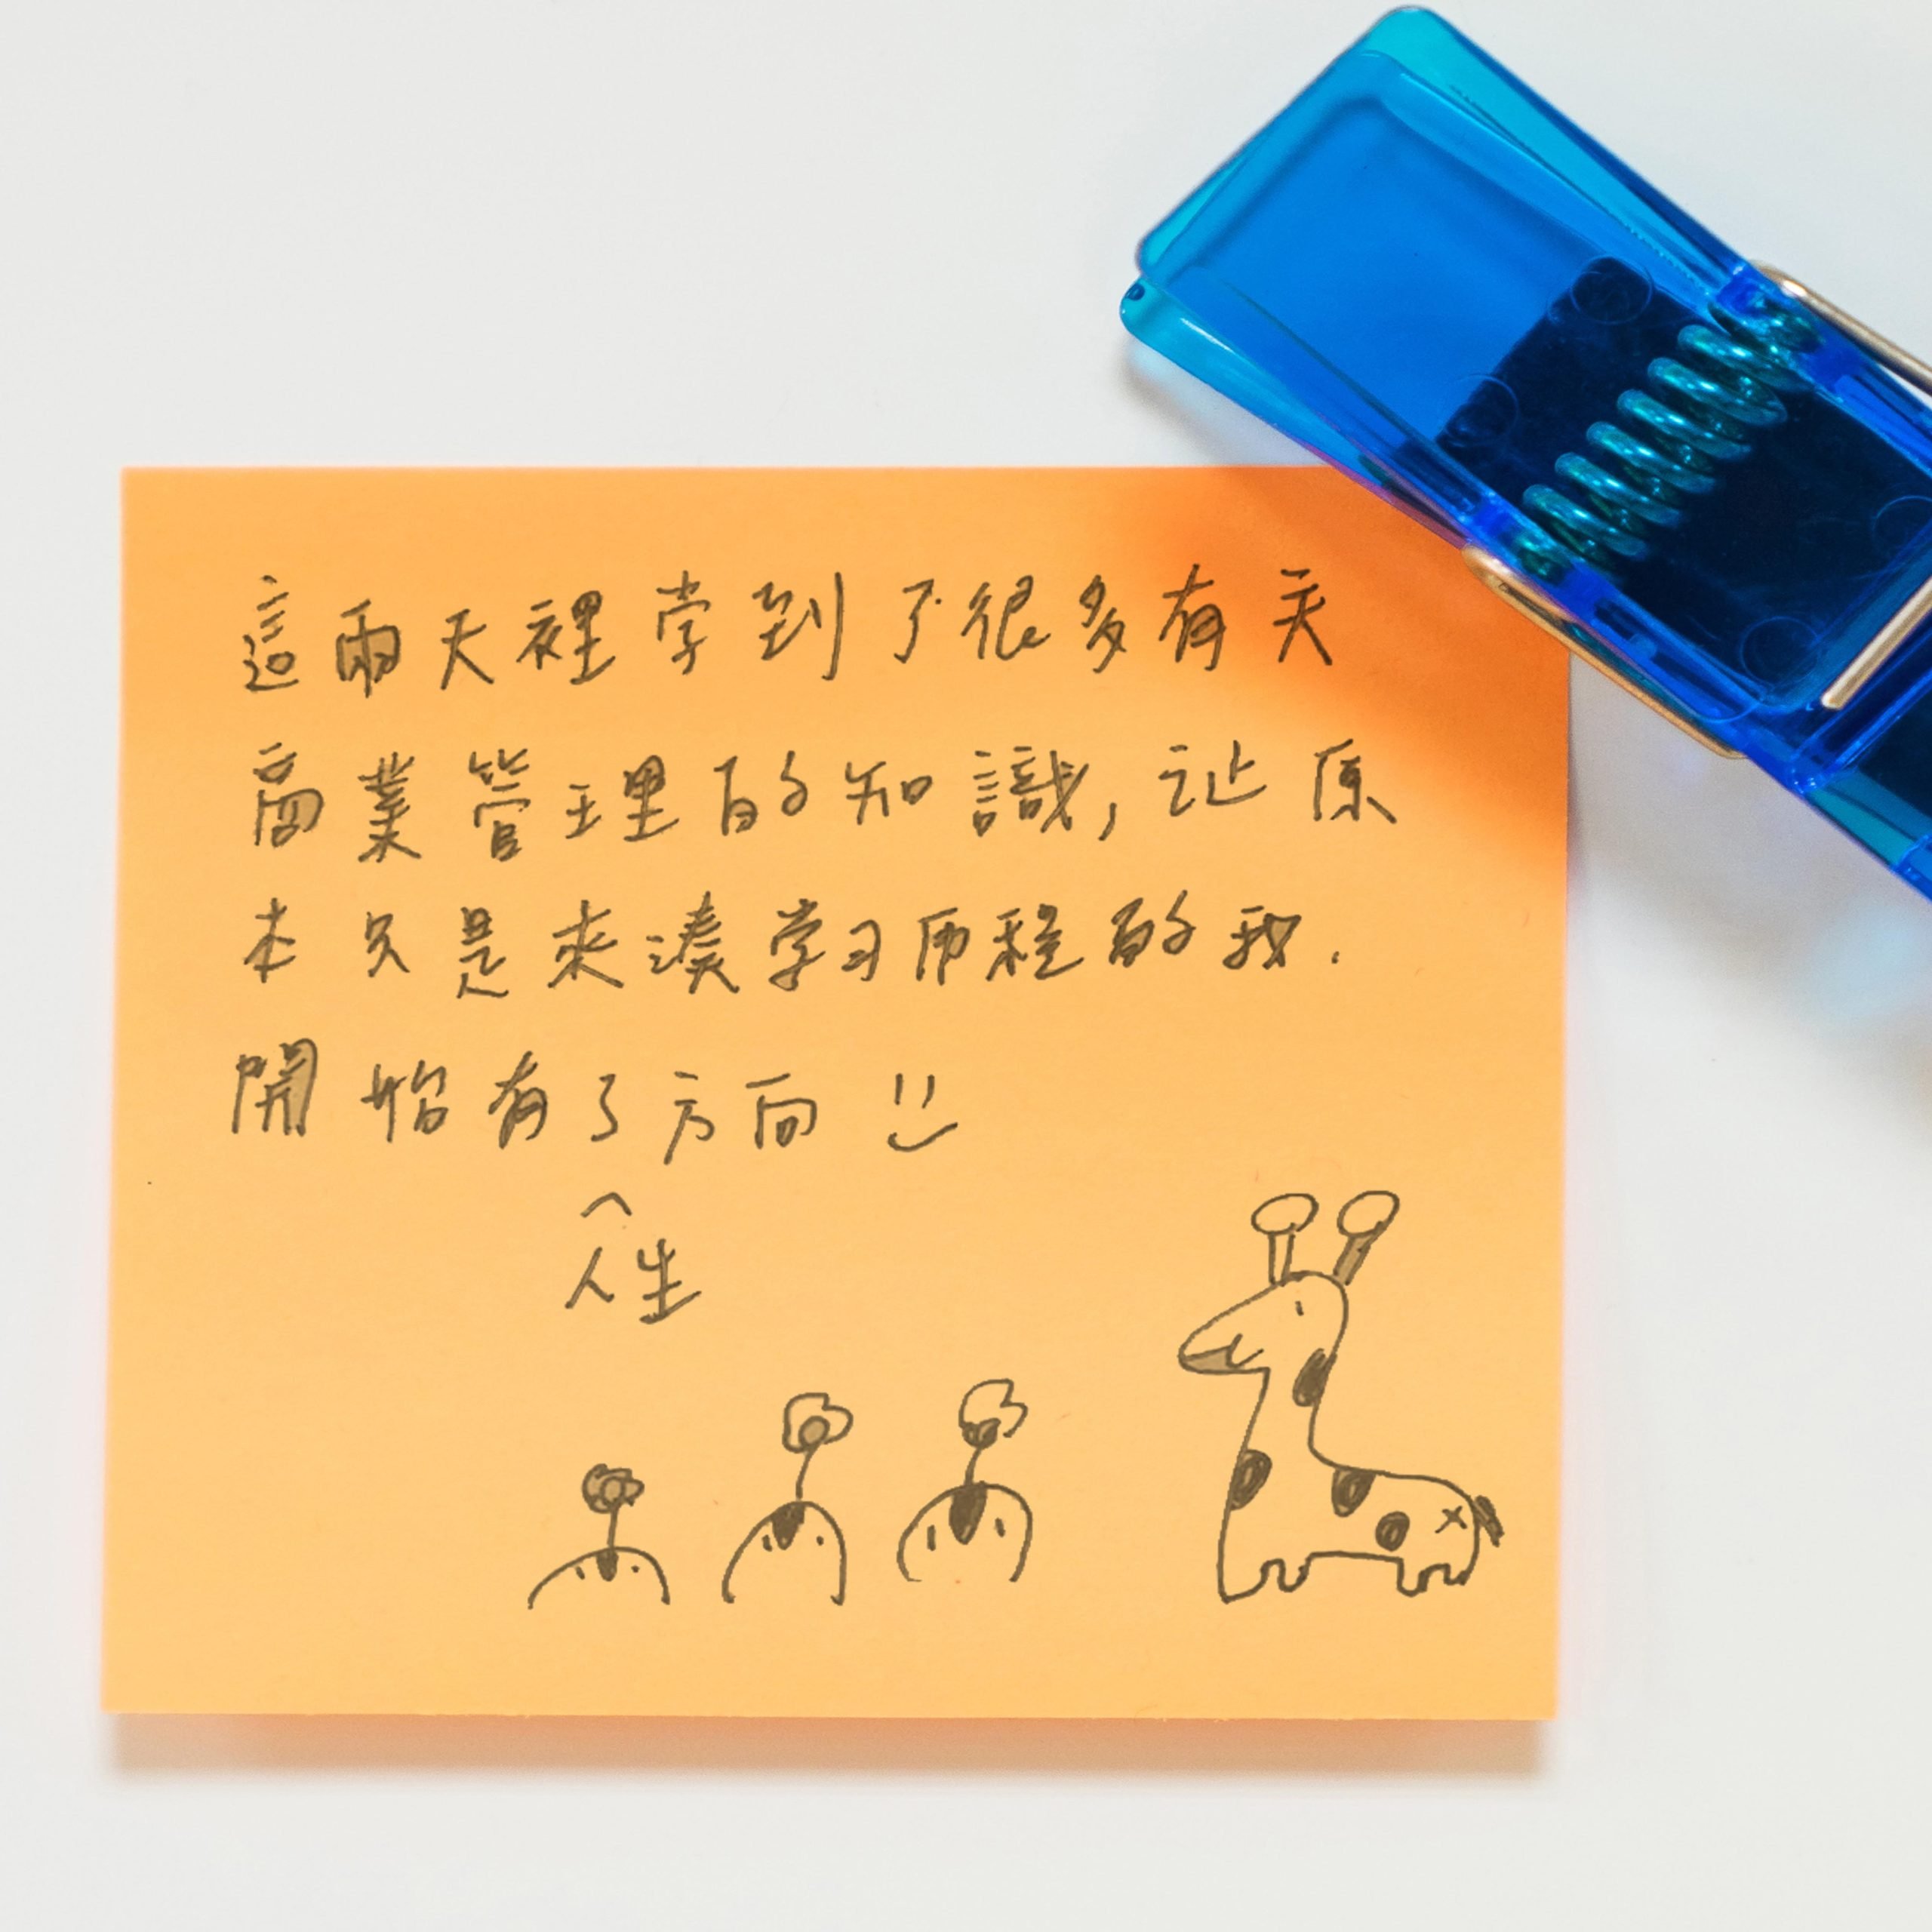 這兩天裡学到了很多有天
商業管理的知識，让原
本只是來湊学习历程的我.
開始有了方向
^
人生